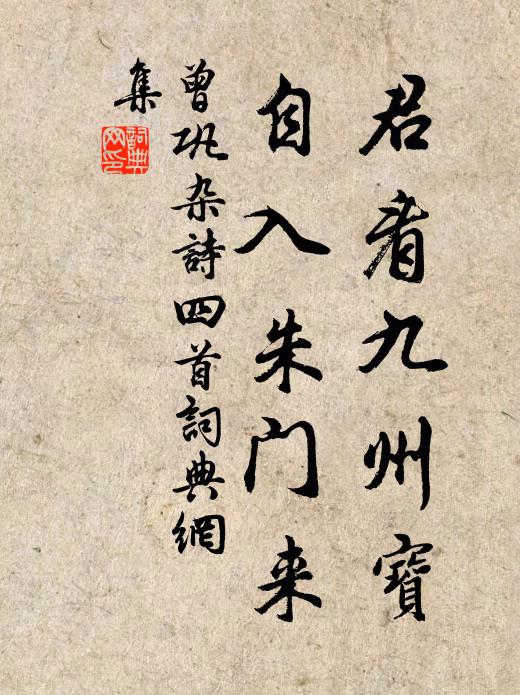 君看九州寶
自入朱门来
曾巩杂詩四首詞典網
集
詞典
网印